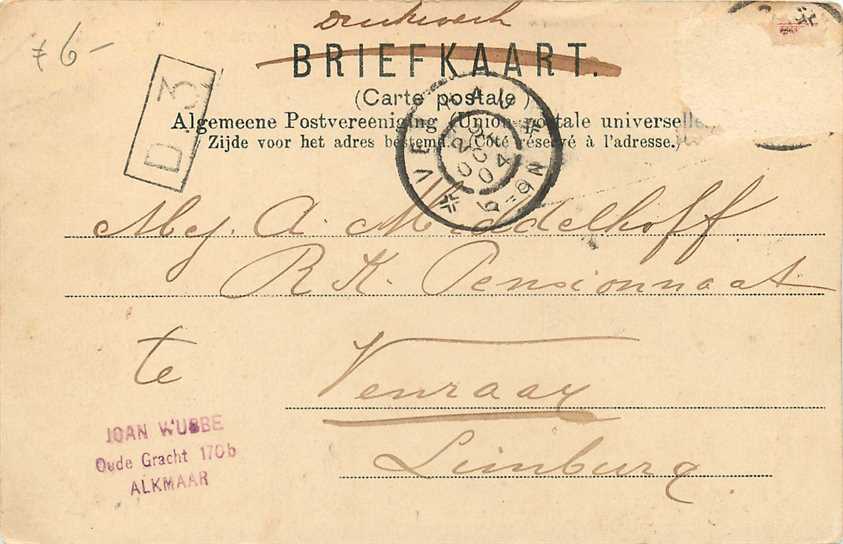 Drukwerk
f 6-
BRIEFKAART.
(Carte postale)
Algemeene Postvereeniging (Union postale universelle
Zijde voor het adres bestemd. (Côté réservé à l'adresse.)
D 3
VENRAY
Mej. A. Middelhoff
R. K. Pensionnaat
te Venraay
Limburg
JOAN WUBBE
Oude Gracht 170b
ALKMAAR